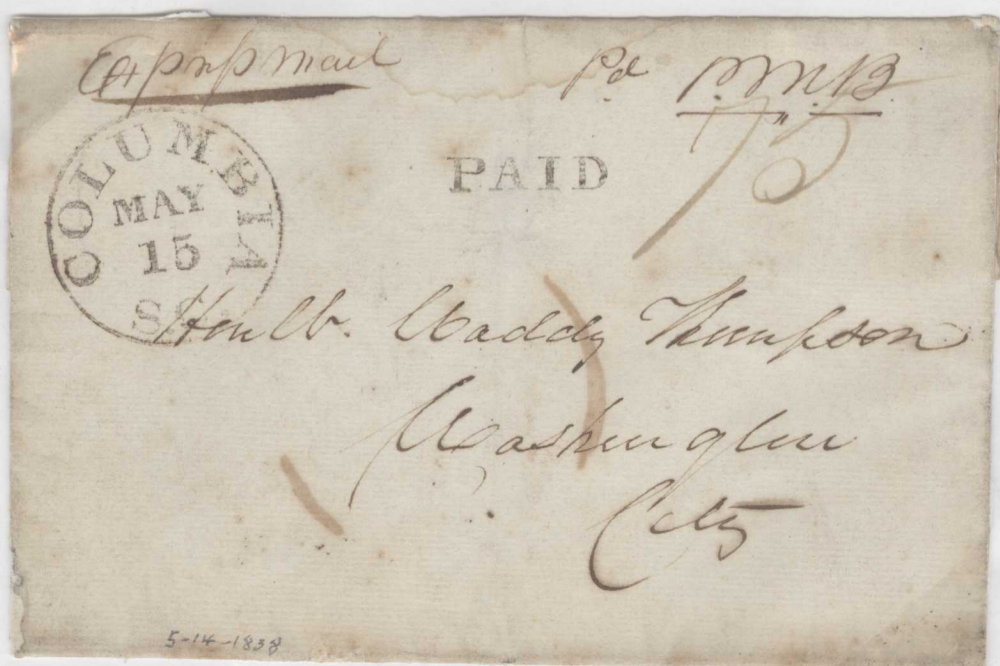 Express Mail
Pd P.M.B.
75
PAID
COLUMBIA
MAY
15
S.C.
Honble. Waddy Thompson
Washington
City
5-14-1838